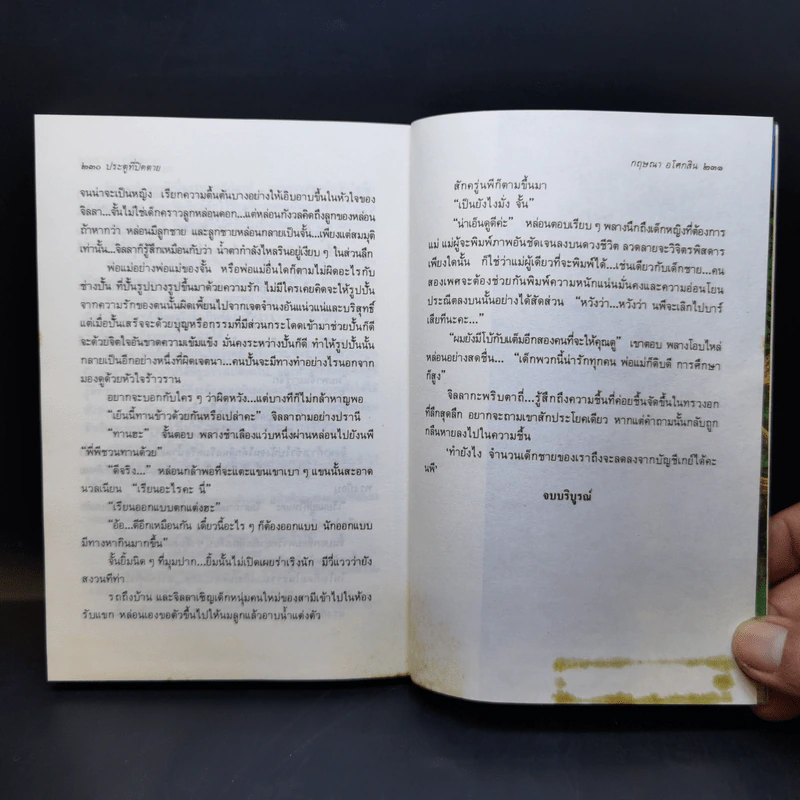 ๒๓๐ ประตูที่ปิดตาย
จนน่าจะเป็นหญิง เรียกความตื้นตันบางอย่างให้เอิบอาบขึ้นในหัวใจของ
จิลลา...จั้นไม่ใช่เด็กคราวลูกหล่อนดอก...แต่หล่อนกังวลคิดถึงลูกของหล่อน
ถ้าหากว่า หล่อนมีลูกชาย และลูกชายหล่อนกลายเป็นจั้น...เพียงแต่สมมุติ
เท่านั้น...จิลลาก็รู้สึกเหมือนกับว่า น้ำตากำลังไหลรินอยู่เงียบ ๆ ในส่วนลึก
พ่อแม่อย่างพ่อแม่ของจั้น หรือพ่อแม่อื่นใดก็ตามไม่ผิดอะไรกับ
ช่างปั้น ที่ปั้นรูปบางรูปขึ้นมาด้วยความรัก ไม่มีใครเคยคิดจะให้รูปปั้น
จากความรักของตนนั้นผิดเพี้ยนไปจากเจตจำนงอันแน่วแน่และบริสุทธิ์
แต่เมื่อปั้นเสร็จจะด้วยบุญหรือกรรมที่มีส่วนกระโดดเข้ามาช่วยปั้นก็ดี
จะด้วยจิตใจอันขาดความเข้มแข็ง มั่นคงระหว่างปั้นก็ดี ทำให้รูปปั้นนั้น
กลายเป็นอีกอย่างหนึ่งที่ผิดเจตนา...คนปั้นจะมีทางทำอย่างไรนอกจาก
มองดูด้วยหัวใจร้าวราน
อยากจะบอกกับใคร ๆ ว่าผิดหวัง...แต่บางทีก็ไม่กล้าหาญพอ
“เย็นนี้ทานข้าวด้วยกันหรือเปล่าคะ” จิลลาถามอย่างปรานี
“ทานฮะ” จั้นตอบ พลางชำเลืองแว่บหนึ่งผ่านหล่อนไปยังนพี
“พี่พีชวนทานด้วย”
“ดีจริง...” หล่อนกล้าพอที่จะแตะแขนเขาเบา ๆ แขนนั้นสะอาด
นวลเนียน “เรียนอะไรคะ นี่”
“เรียนออกแบบตกแต่งฮะ”
“อ้อ...ดีอีกเหมือนกัน เดี๋ยวนี้อะไร ๆ ก็ต้องออกแบบ นักออกแบบ
มีทางหากินมากขึ้น”
จั้นยิ้มนิด ๆ ที่มุมปาก...ยิ้มนั้นไม่เปิดเผยร่าเริงนัก มีวี่แววว่ายัง
สงวนทีท่า
รถถึงบ้าน และจิลลาเชิญเด็กหนุ่มคนใหม่ของสามีเข้าไปในห้อง
รับแขก หล่อนเองขอตัวขึ้นไปให้นมลูกแล้วอาบน้ำแต่งตัว
กฤษณา อโศกสิน ๒๓๑
สักครู่นพีก็ตามขึ้นมา
“เป็นยังไงมั่ง จั้น”
“น่าเอ็นดูดีค่ะ” หล่อนตอบเรียบ ๆ พลางนึกถึงเด็กหญิงที่ต้องการ
แม่ แม่ผู้จะพิมพ์ภาพอันชัดเจนลงบนดวงชีวิต ลวดลายจะวิจิตรพิสดาร
เพียงใดนั้น ก็ใช่ว่าแม่ผู้เดียวที่จะพิมพ์ได้...เช่นเดียวกับเด็กชาย...คน
สองเพศจะต้องช่วยกันพิมพ์ความหนักแน่นมั่นคงและความอ่อนโยน
ประณีตลงบนนั้นอย่างได้สัดส่วน “หวังว่า...หวังว่า นพีจะเลิกไปบาร์
เสียทีนะคะ...”
“ผมยังมีโบ้กับแต้มอีกสองคนที่จะให้คุณดู” เขาตอบ พลางโอบไหล่
หล่อนอย่างสดชื่น... “เด็กพวกนี้น่ารักทุกคน พ่อแม่ก็ดิบดี การศึกษา
ก็สูง”
จิลลากะพริบตาถี่...รู้สึกถึงความชื้นที่ค่อยชื้นจัดขึ้นในทรวงอก
ที่ลึกสุดลึก อยากจะถามเขาสักประโยคเดียว หากแต่คำถามนั้นกลับถูก
กลืนหายลงไปในความชื้น
‘ทำยังไง จำนวนเด็กชายของเราถึงจะลดลงจากบัญชีเกย์ได้คะ
นพี’
จบบริบูรณ์